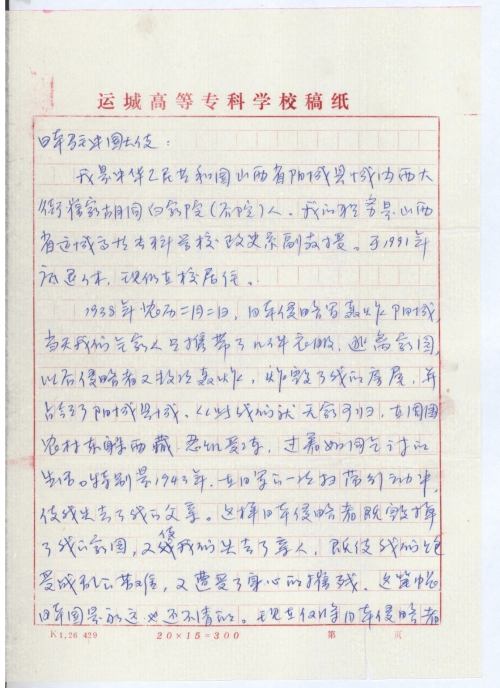 运城高等专科学校稿纸
日本驻中国大使：
我是中华人民共和国山西省阳城县城内西大
街崔家胡同白家院（后院）人。我的职务是山西
省运城高等专科学校政史系副教授。于1991年
初退休，现仍在校居住。
1938年农历二月二日，日本侵略军轰炸阳城，
当天我们全家人只携带了几件衣服，逃离家园，
以后侵略者又多次轰炸，炸毁了我的房屋，并
占领了阳城县城。从此我们就无家可归，在周围
农村东躲西藏忍饥受冻，过着如同乞讨的
生活。特别是1943年，在日军的一次扫荡行动中，
使我失去了我的父亲。这样日本侵略者既毁掉
了我的家园，又使我们失去了亲人，既使我们饱
受战乱之苦难，又遭受了身心的摧残。这笔血债
日本国是永远也还不清的。现在仅将日本侵略者
K1.26 429
20×15=300
第 页